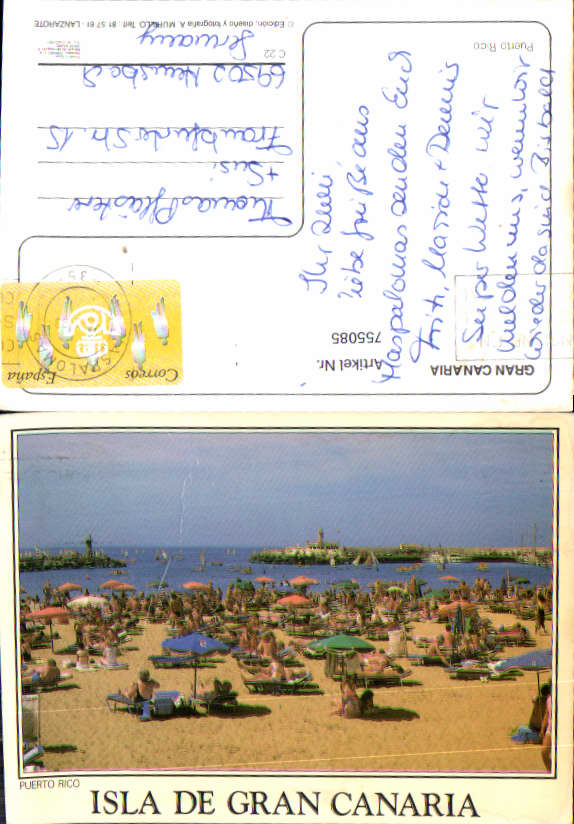 GRAN CANARIA
Puerto Rico
Artikel Nr.
755085
Ihr Zwei
liebe Grüße aus
Maspalomas senden Euch
Fritz, Marion + Dennis
Super Wetter wir
melden uns, wenn wir
wieder da sind Bis bald
Correos
España
Thomas Pflästerer
+ Susi
Str. 15
69502 Hemsbach
Germany
C 22
© Edición, diseño y fotografía A. MURILLO. Telf. 81 57 61 - LANZAROTE
PUERTO RICO
ISLA DE GRAN CANARIA